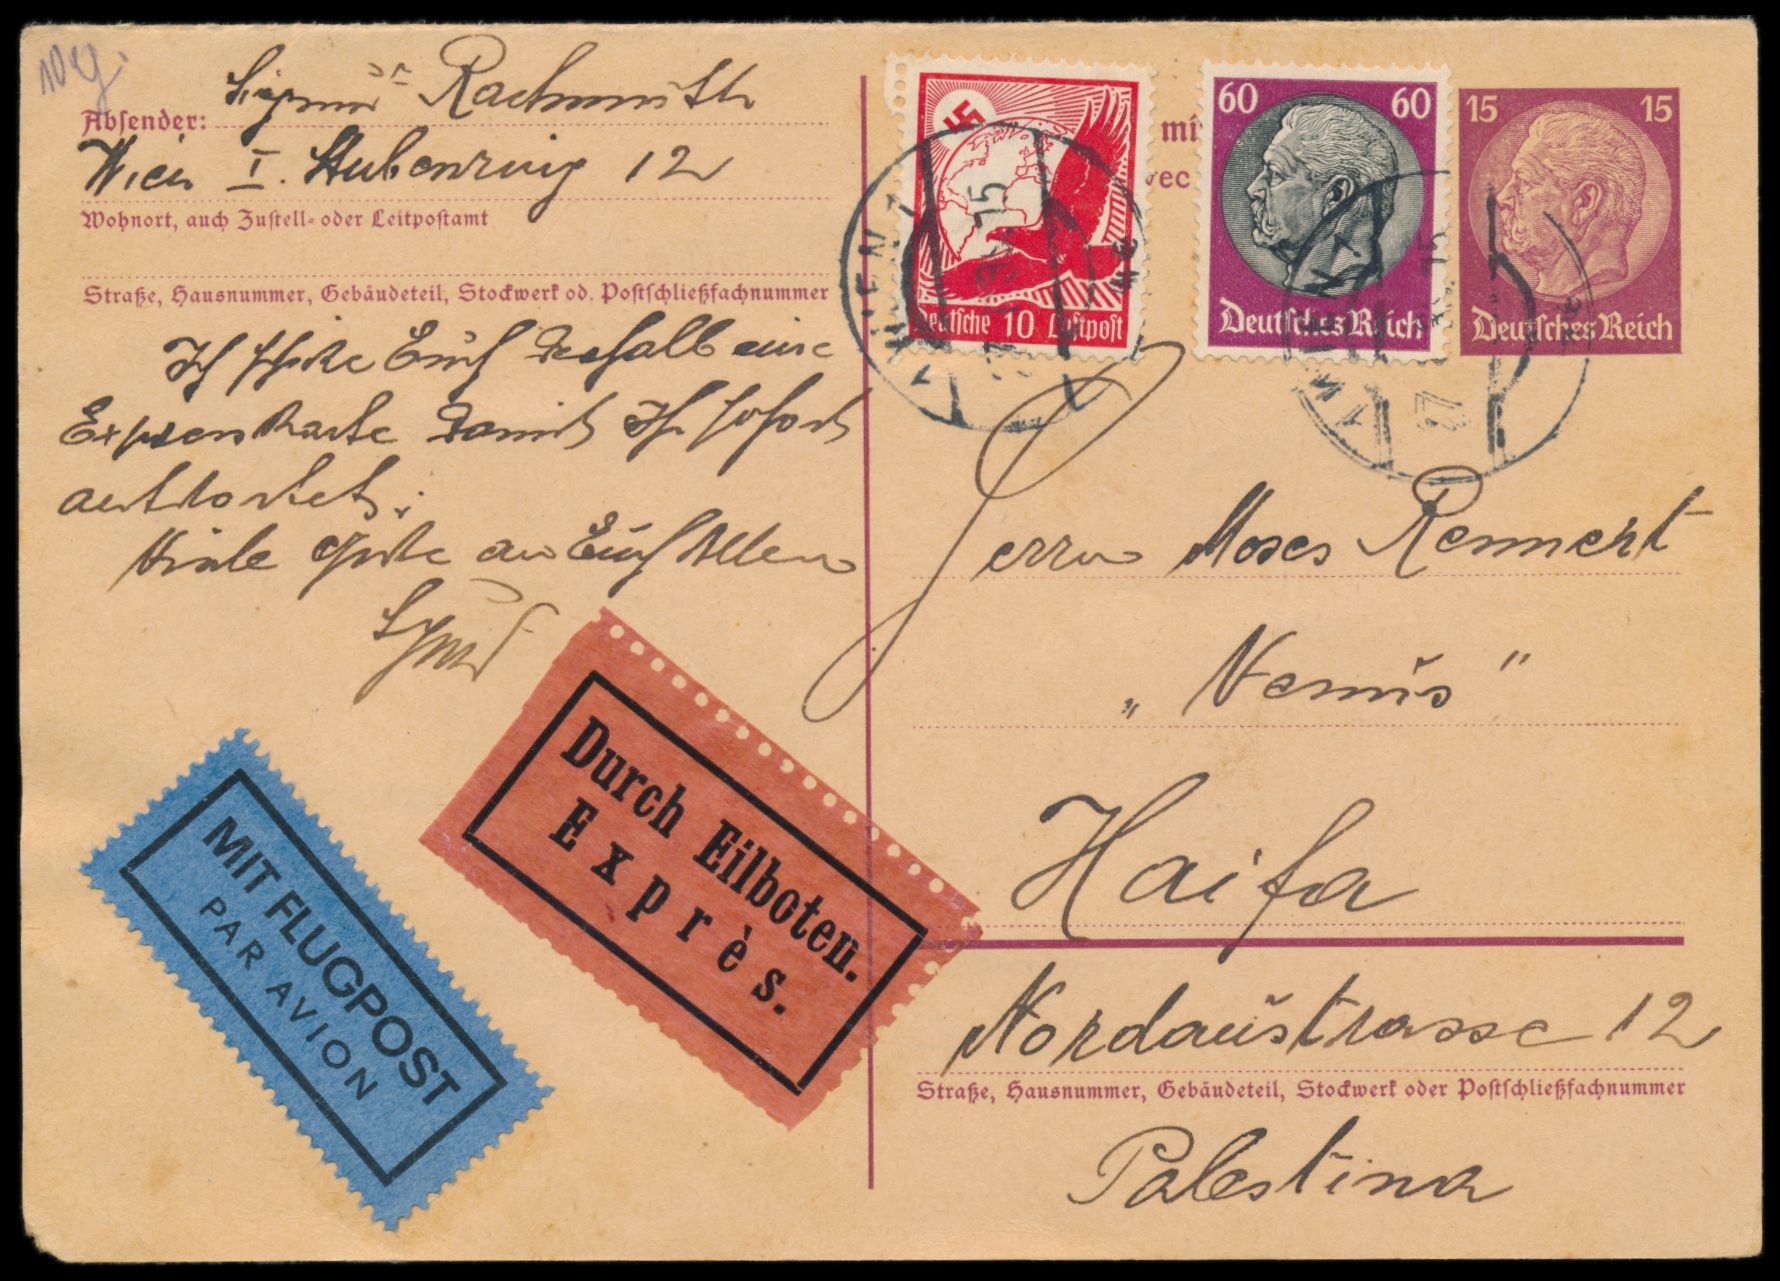 Absender: Rachmuth
Wien I. Stubenring 12
Wohnort, auch Zustell- oder Leitpostamt
Straße, Hausnummer, Gebäudeteil, Stockwerk od. Postschließfachnummer
Ich schicke Euch deshalb eine
Expresskarte damit Ihr sofort
antwortet.
Viele Grüße an Euch Allen
MIT FLUGPOST
PAR AVION
Durch Eilboten.
Exprès.
Deutsche 10 Luftpost
60 60
Deutsches Reich
15 15
Deutsches Reich
WIEN 1
WIEN 1
Herrn Moses Rennert
„Venus"
Haifa
Nordaustrasse 12
Straße, Hausnummer, Gebäudeteil, Stockwerk oder Postschließfachnummer
Palestina